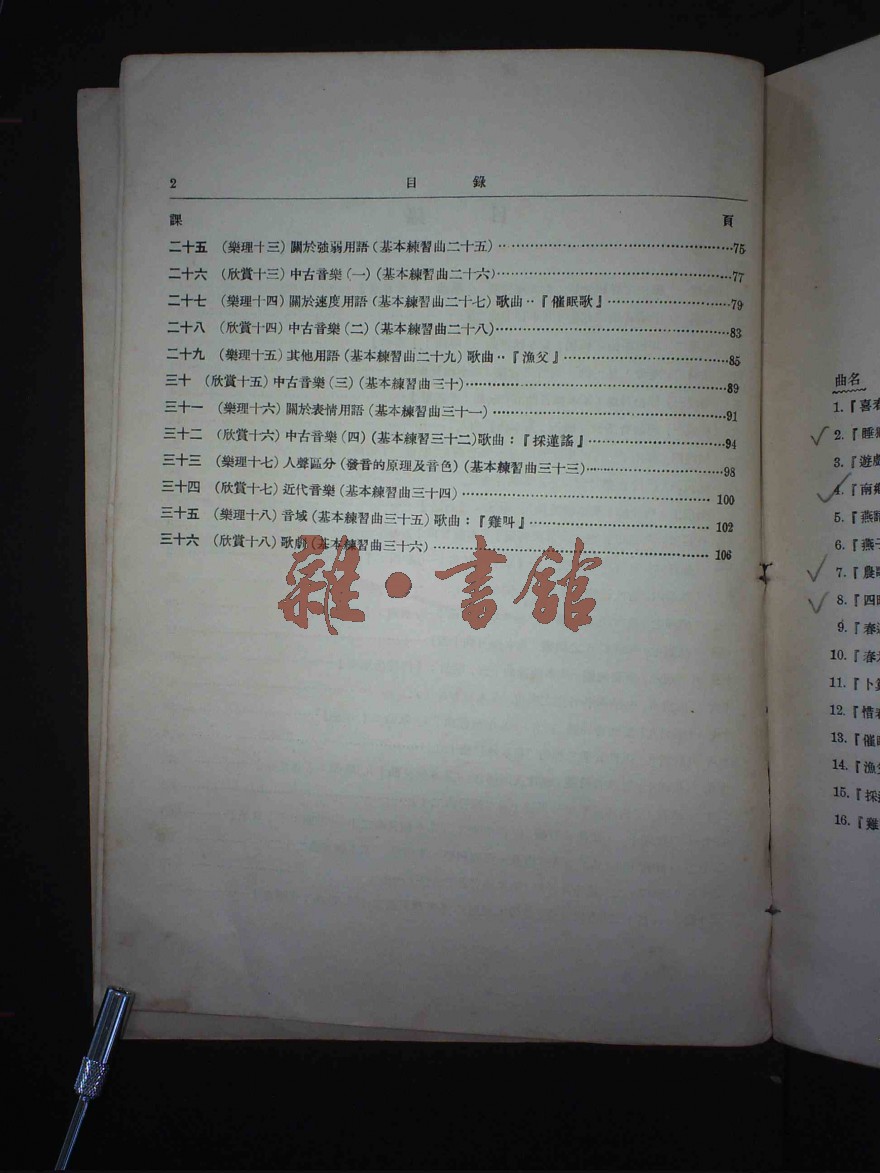 2 目 錄
課 頁
二十五 (樂理十三) 關於強弱用語 (基本練習曲二十五) ……75
二十六 (欣賞十三) 中古音樂 (一) (基本練習曲二十六)……77
二十七 (樂理十四) 關於速度用語 (基本練習曲二十七) 歌曲‥『催眠歌』……79
二十八 (欣賞十四) 中古音樂 (二) (基本練習曲二十八)……83
二十九 (樂理十五) 其他用語 (基本練習曲二十九) 歌曲‥『漁父』……85
三十 (欣賞十五) 中古音樂 (三) (基本練習曲三十)……89
三十一 (樂理十六) 關於表情用語 (基本練習曲三十一)……91
三十二 (欣賞十六) 中古音樂 (四) (基本練習三十二)歌曲：『採蓮謠』……94
三十三 (樂理十七) 人聲區分 (發音的原理及音色) (基本練習曲三十三)……98
三十四 (欣賞十七) 近代音樂 (基本練習曲三十四)……100
三十五 (樂理十八) 音域 (基本練習曲三十五) 歌曲：『雞叫』……102
三十六 (欣賞十八) 歌劇 (基本練習曲三十六)……106
雜·書館
曲名
1.『喜春
2.『睡鄉
3.『遊戲
4.『南鄉
5.『燕語
6.『燕子
7.『農歌
8.『四時
9.『春遊
10.『春
11.『卜算
12.『惜春
13.『催眠
14.『漁父
15.『採蓮
16.『雞